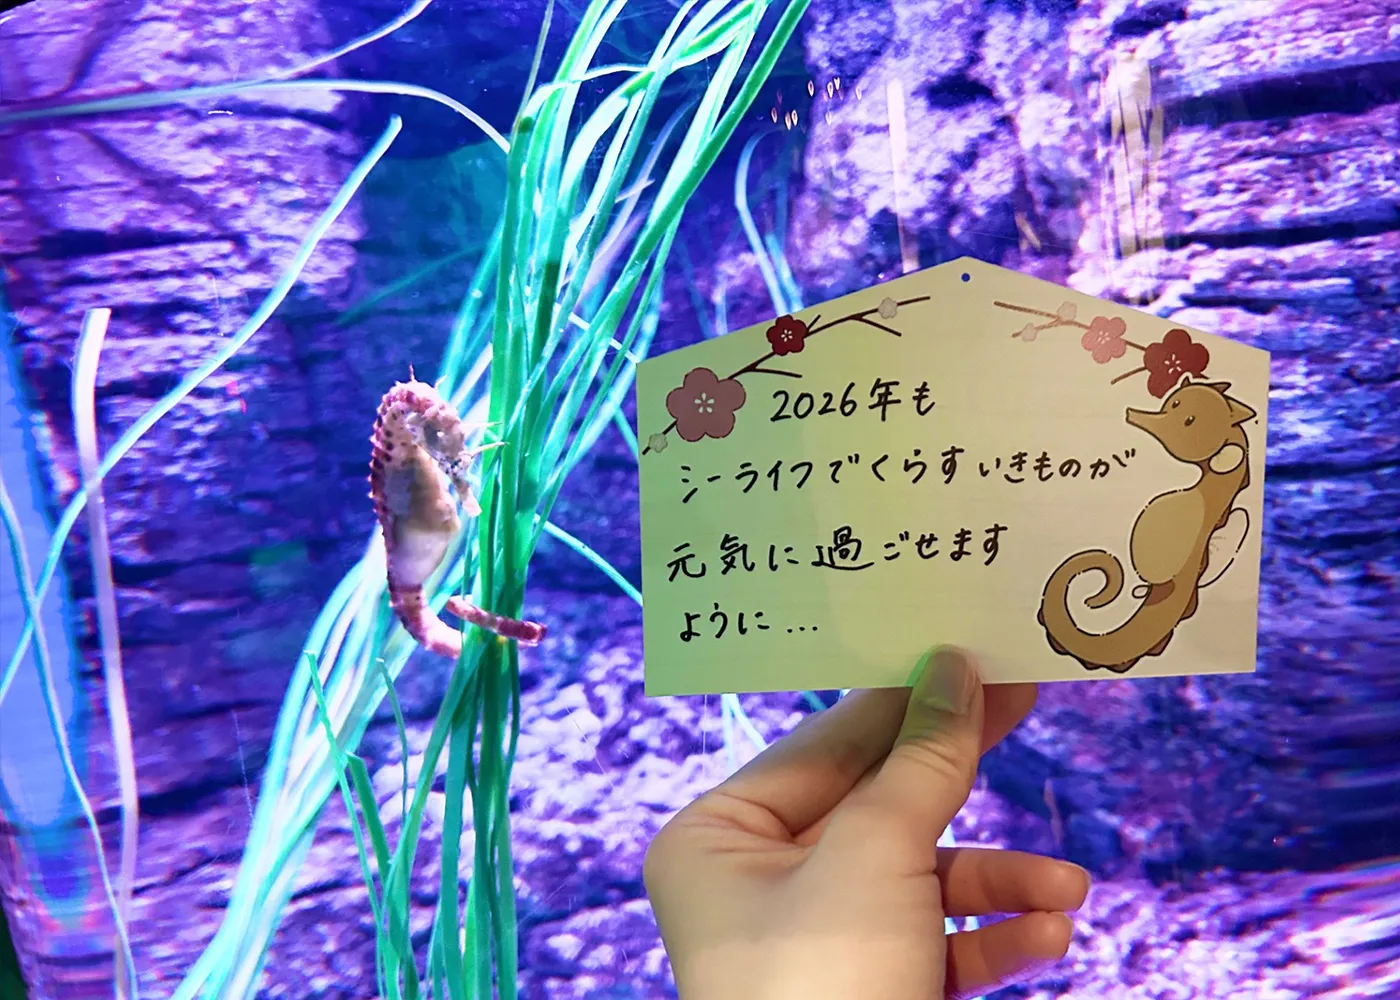 2026年も
シーライフでくらすいきものが
元気に過ごせます
ように…